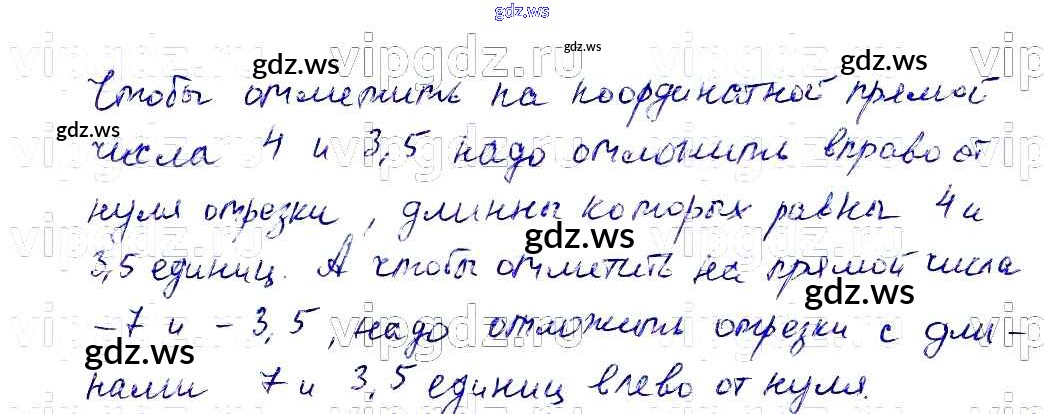 gdz.ws
vipgdz.ru vipgdz.ru gdz.ws vipgdz
gdz.ws gdz.ws
Чтобы отметить на координатной прямой
gdz.ws
числа 4 и 3,5 надо отложить вправо от
нуля отрезки, длинны которых равны 4 и
vipgdz.ru vipgdz.ru gdz.ws vipgdz
3,5 единиц. А чтобы отметить на прямой числа
gdz.ws
-7 и -3,5, надо отложить отрезки с дли-
gdz.ws
нами 7 и 3,5 единиц влево от нуля.